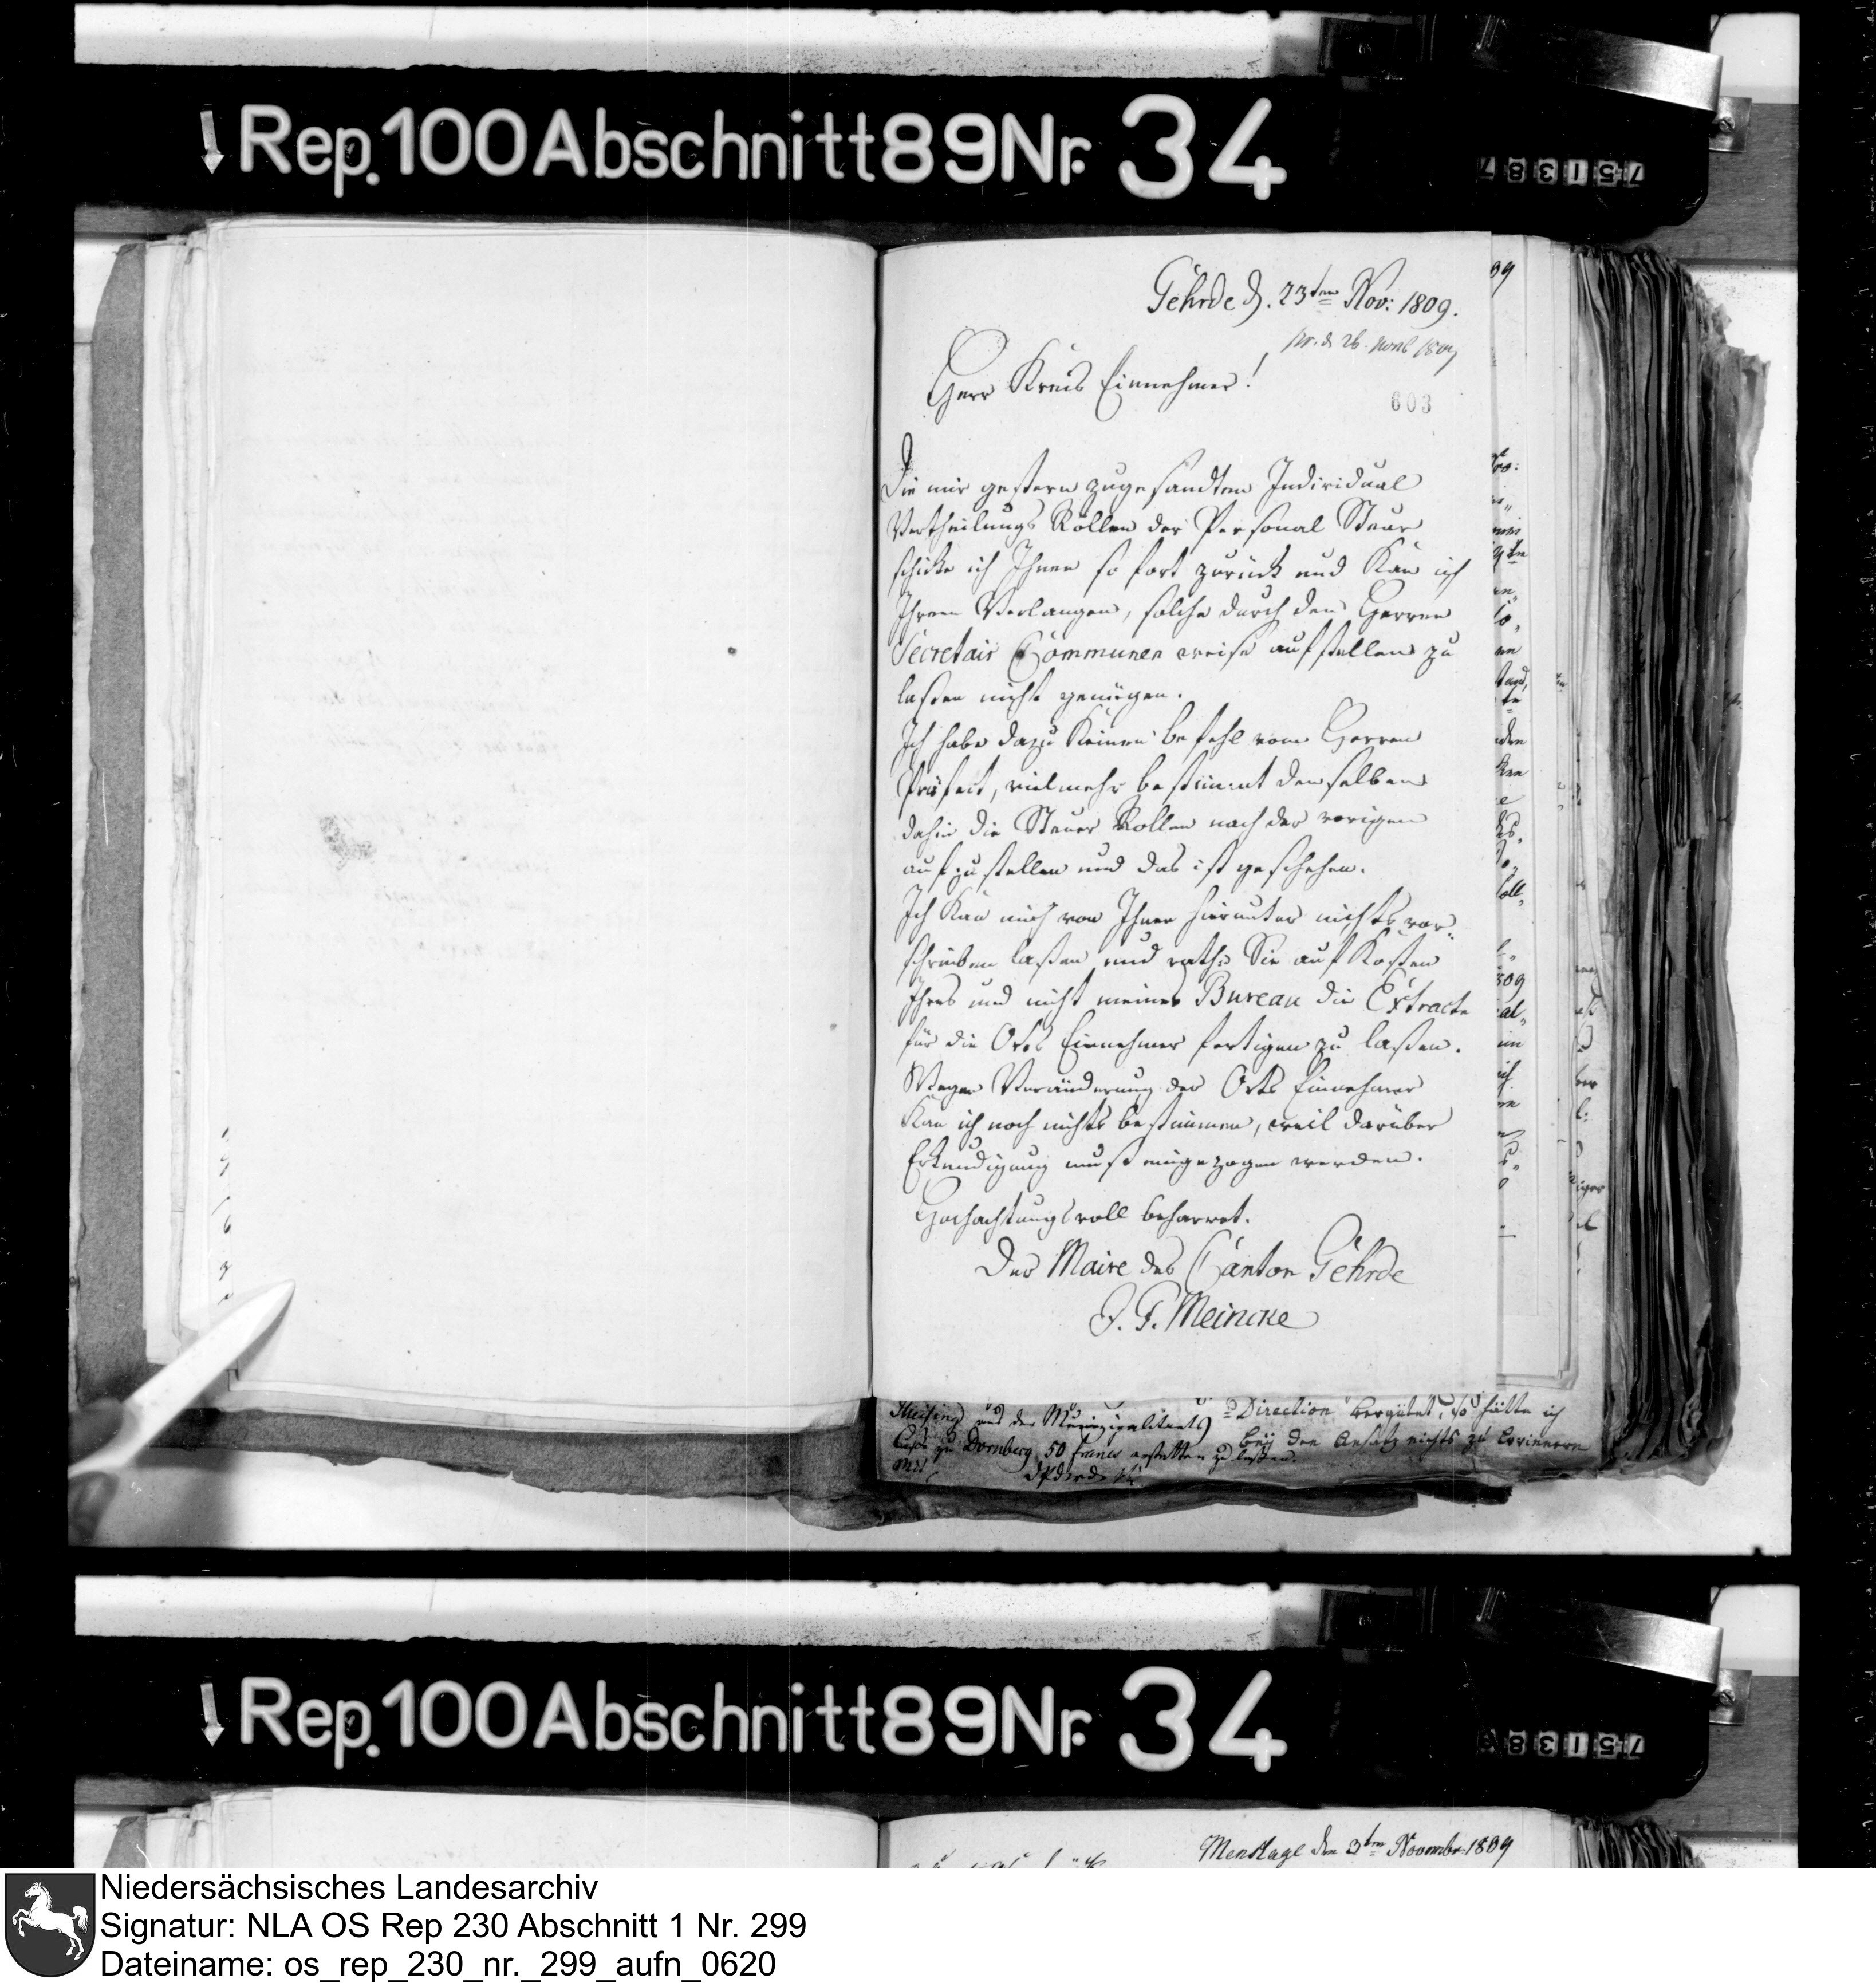 Rep. 100 Abschnitt 89 Nr. 34
751387
Gehrde d. 23ten Nov: 1809.
pr. d 26. Novb 1809
Herr Kreis Einnehmer!
603
Die mir gestern zugesandten Individual
Vertheilungs Rollen der Personal Steuer
schicke ich Ihnen so fort zurück und kan ich
Ihrem Verlangen, solche durch den Herren
Secretair Communen weise aufstellen zu
laßen nicht genügen.
Ich habe dazu keinen befehl vom Herren
Präfect, vielmehr bestimmt denselben
dahin die Steuer Rollen nach der vorigen
aufzustellen und das ist geschehen.
Ich kan mich von Ihnen hierunter nichts vor-
schreiben laßen und rathe Sie auf Kosten
Ihres und nicht meines Bureau die Extracte
für die Orts Einnehmer fertigen zu laßen.
Wegen Veränderung der Orts Einnehmer
kan ich noch nichts bestimmen, weil darüber
Erkundigung muß eingezogen werden.
Hochachtungsvoll beharret.
Der Maire des Canton Gehrde
J. F. Meincke
und der Munizipalitaets
Direction vergütet, so hätte ich
zu Dornberg 50 Francs erstatten zu laßen.
bey den Ansatz nichts zu erinnern
Rep. 100 Abschnitt 89 Nr. 34
Menslage den 3ten Novembr 1809
Niedersächsisches Landesarchiv
Signatur: NLA OS Rep 230 Abschnitt 1 Nr. 299
Dateiname: os_rep_230_nr._299_aufn_0620